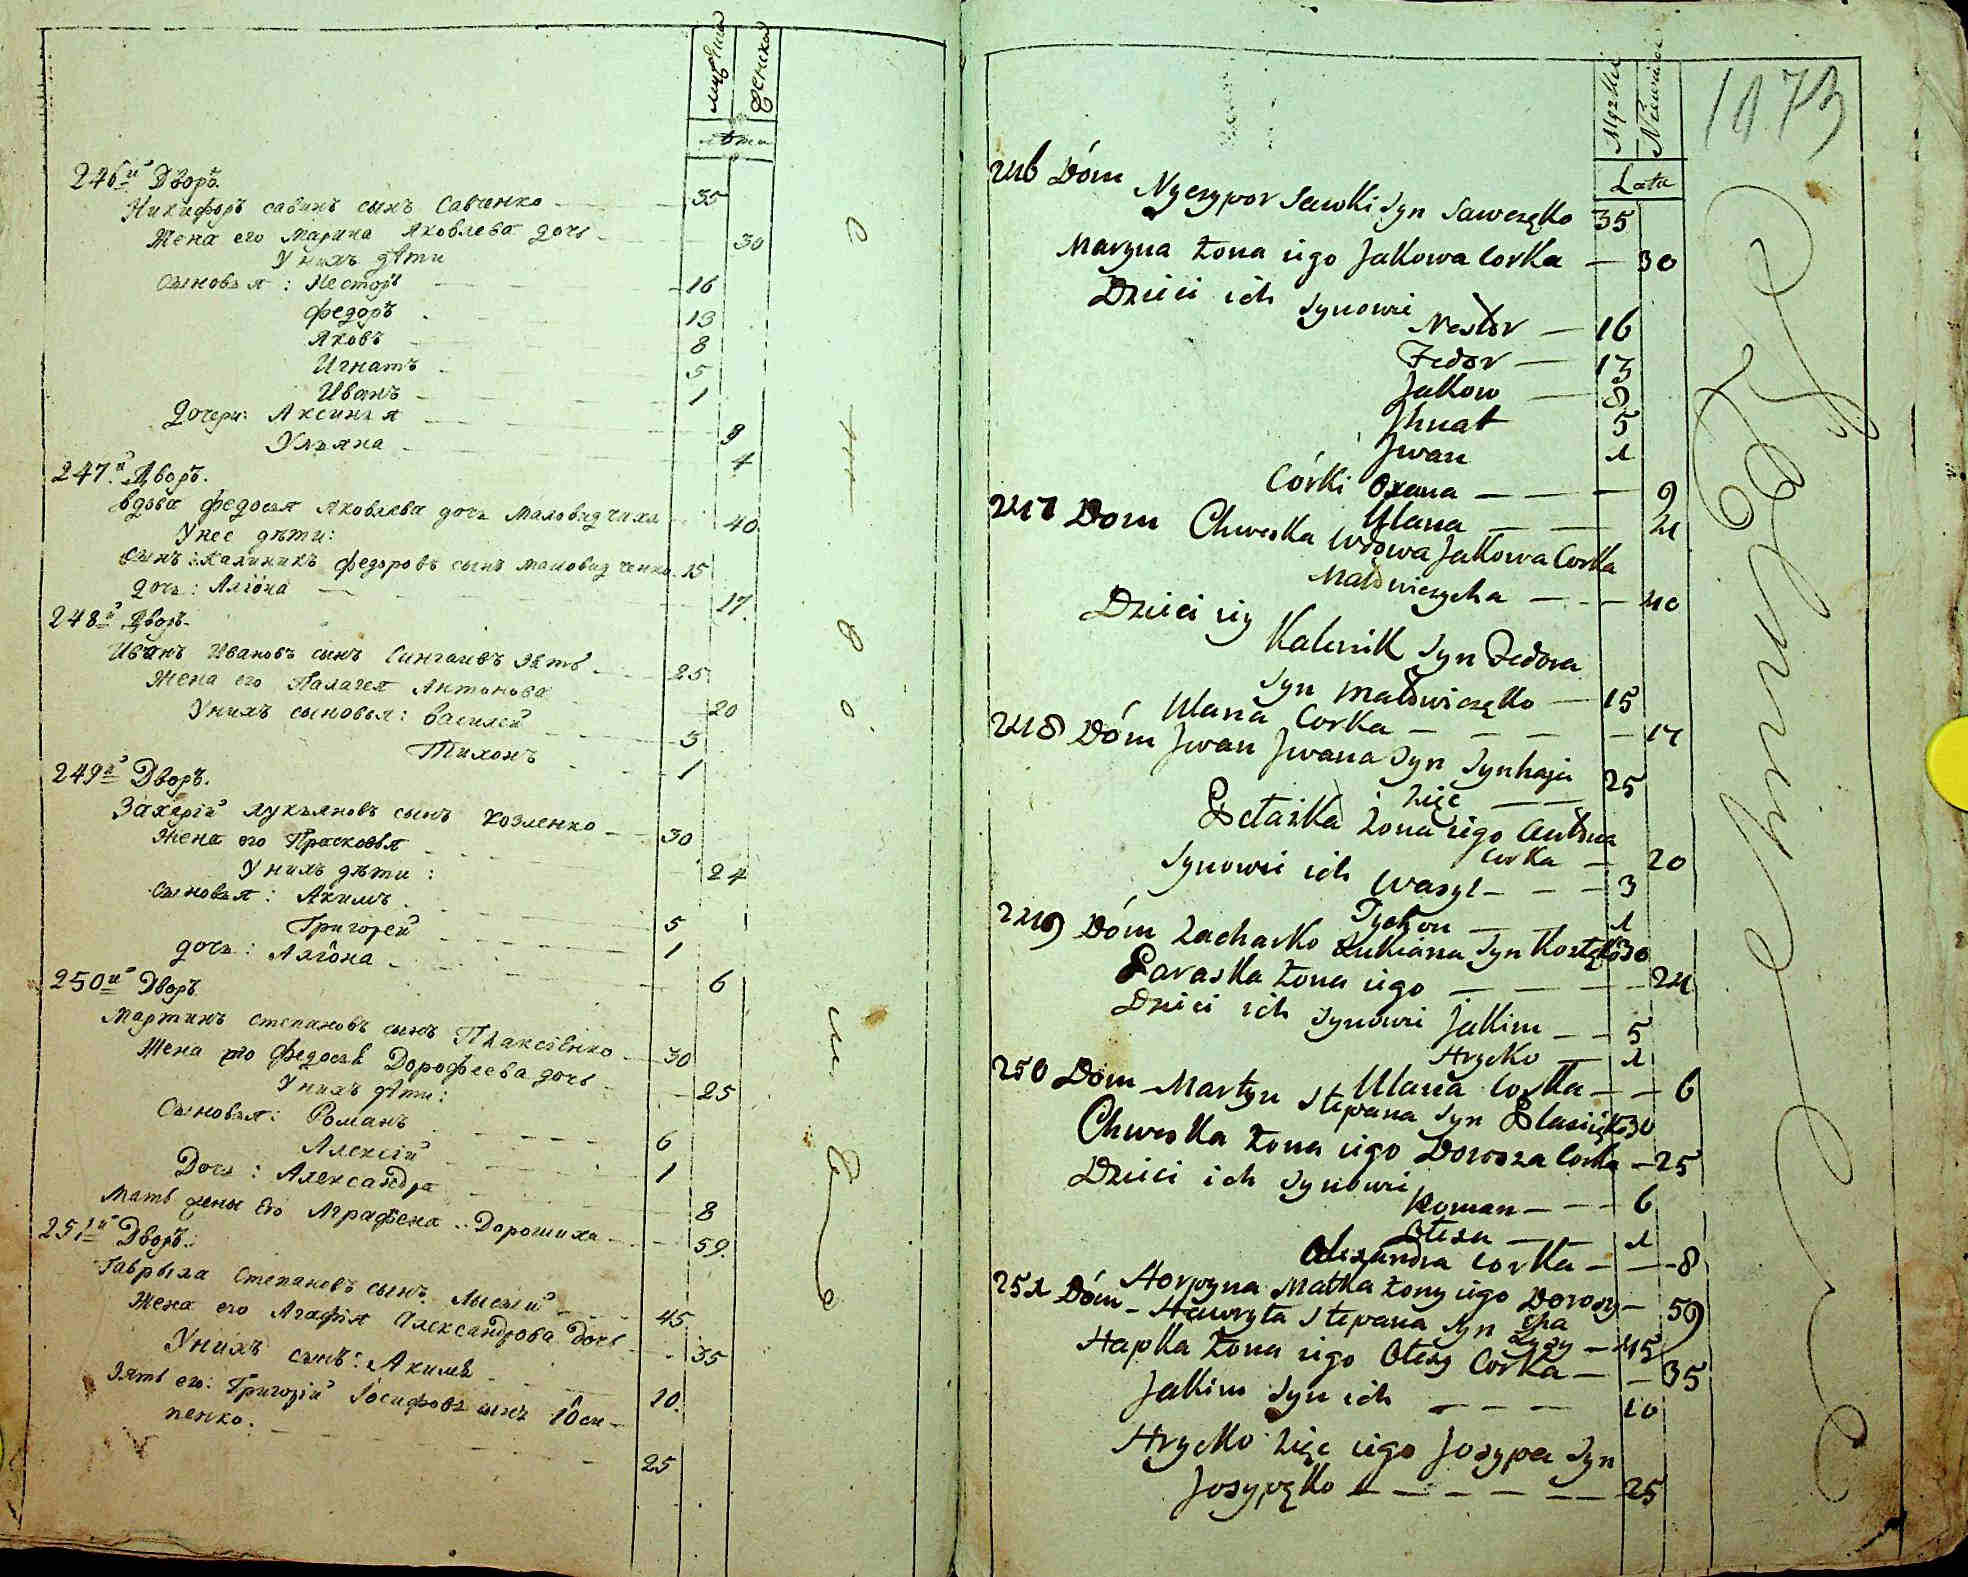 мужеска
женска
лѣта
246й Дворъ.
Никифоръ савинъ сынъ Савченко 35
Жена его Марина Яковлева дочь 30
У нихъ дѣти
Сыновья: Несторъ 16
Федоръ 13
Яковъ 8
Игнатъ 5
Иванъ 1
Дочери: Аксинья 9
Ульяна 4
247й Дворъ.
Вдова Федосья Яковлева дочь 40
У нее дѣти:
Сынъ: Калиникъ Федоровъ сынъ 15
дочь: Алiона 17
248й Дворъ.
Иванъ Ивановъ сынъ зять 25
Жена его Палагея Антонова 20
У нихъ сыновья: Василей 3
Тихонъ 1
249й Дворъ.
Захарiй Лукьяновъ сынъ Козленко 30
Жена его Прасковья 24
У нихъ дѣти:
Сыновья: Акимъ 5
Григорей 1
дочь: Алiона 6
250й Дворъ
Мартинъ Степановъ сынъ Плаксѣенко 30
Жена его Федосья Дорофеева дочь 25
У нихъ дѣти:
Сыновья: Романъ 6
Алексiй 1
Дочь: Александра 8
Мать жены его Аграфена Дорошиха 59.
251й Дворъ.
Гаврыла Степановъ сынъ Лысый 45.
Жена его Агафiя Александрова дочь 35
У нихъ сынъ: Акимъ 10.
Зять его: Григорiй Iосифовъ сынъ Iоси-
пенко. 25
1073
Męzkie
Niewieście
Lata
246 Dóm Nyczypor Sawki Syn Sawczęko 35
Maryna Żona iego Jakowa Corka — 30
Dzieci ich Synowie Nestor — 16
Fedor — 13
Jakow — 8
Ihnat 5
Jwan 1
Córki Oxana — — — 9
Ulana — — 4
247 Dom Chweska Wdowa Jakowa Corka
— — — 40
Dzieci iey Kalenik Syn Fedora
Syn — 15
Ulana Corka — — — — 17
248 Dóm Jwan Jwana Syn Synhaja
Zięc — — 25
Pełażka Żona iego Antona
Corka — 20
Synowie ich Wasyl — — — 3
Tychon — — 1
249 Dóm Zacharko Łukiana Syn 30
Paraska Żona iego — — — — 24
Dzieci ich Synowie Jakim — — 5
Hryćko — 1
Ulana Corka — — 6
250 Dom — Martyn Stepana Syn 30
Chweska Żona iego Dorosza Corka — 25
Dzieci ich Synowie
Roman — — — 6
Ołexa — — 1
Olexandra Corka — — 8
Horpyna Matka Żony iego Doroszy-
cha 59
251 Dóm — Hawryła Stepana Syn
Łysy — 45
Hapka Żona iego Ołexy Corka — — 35
Jakim Syn ich — — — 10
Hryćko Zięc iego Josypa Syn
Josypęko — — — — — 25